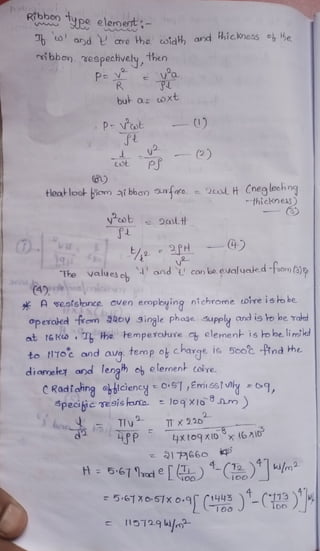 Ribbon type element:-
If 'w' and 't' are the width and thickness of the
ribbon respectively, then
P = V²/R = V²a/ρl
but a = w×t
P = V²wt/ρl — (1)
l/wt = V²/Pρ — (2)
Heat lost from ribbon surface = 2wl H (neglecting
thickness)
— (3)
V²wt/ρl = 2wlH
t/l² = 2ρH/V² — (4)
The values of 'l' and 't' can be evaluated from (3) &
(4)
* A resistance oven employing nichrome wire is to be
operated from 220V single phase supply and is to be rated
at 16 KW. If the temperature of element is to be limited
to 1170°C and avg. temp of charge is 500°C find the
diameter and length of element wire.
(Radiating efficiency = 0.57, Emissivity = 0.9,
specific resistance = 109×10⁻⁸ Ωm)
l/d² = πV²/4ρP = π × 220²/4×109×10⁻⁸ × 16×10³
= 2179660
H = 5.67 ηrad e [(T₁/100)⁴ - (T₂/100)⁴] W/m²
= 5.67×0.57×0.9 [(1443/100)⁴ - (773/100)⁴]
= 115729 W/m²